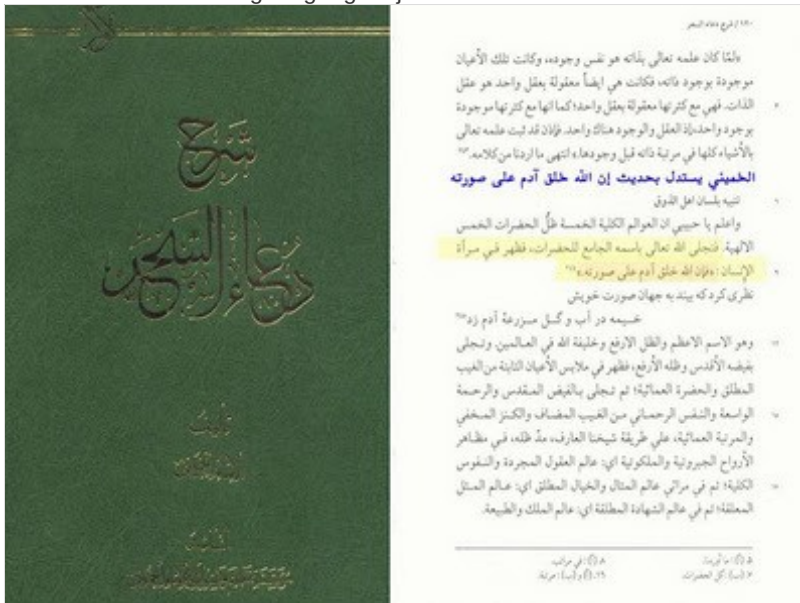 شرح
دعاء السحر
تأليف
١٢٠ / شرح دعاء السحر
«لمّا كان علمه تعالى بذاته هو نفس وجوده، وكانت تلك الأعيان
موجودة بوجود ذاته، فكانت هي ايضاً معقولة بعقل واحد هو عقل
الذات. فهي مع كثرتها معقولة بعقل واحد؛ كما انها مع كثرتها موجودة
بوجود واحد، إذ العقل والوجود هناك واحد. فإذن قد ثبت علمه تعالى
بالأشياء كلها في مرتبة ذاته قبل وجودها.» انتهى ما اردنا من كلامه.
الخميني يستدل بحديث إن الله خلق آدم على صورته
تنبيه بلسان اهل الذوق
واعلم يا حبيبي ان العوالم الكلية الخمسة ظلُّ الحضرات الخمس
الالهية. فتجلى الله تعالى باسمه الجامع للحضرات، فظهر في مرآة
الإنسان: «فإن الله خلق آدم على صورته.»
نظری کرد که بیند به جهان صورت خویش
خــیمه در آب و گــل مــزرعهٔ آدم زد
وهو الاسم الاعظم والظل الارفع وخليفة الله في العـالمين. وتـجلى
بفيضه الأقدس وظله الأرفع، فظهر في ملابس الأعيان الثابتة من الغيب
المطلق والحضرة العمائية؛ ثم تـجلى بـالفيض المـقدس والرحـمة
الواسعة والنـفس الرحمـاني مـن الغـيب المـضاف والكـنز المـخفي
والمرتبة العمائية، على طريقة شيخنا العارف، مدّ ظله، فـي مظـاهر
الأرواح الجبروتية والملكوتية اي: عالم العقول المجردة والنـفوس
الكلية؛ ثم في مرائي عالم المثال والخيال المطلق اي: عـالم المـثل
المعلقة؛ ثم في عالم الشهادة المطلقة اي: عالم الملك والطبيعة.